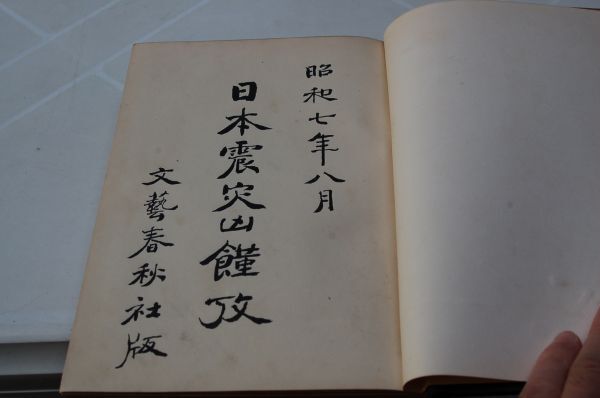 昭和七年八月
日本震災凶饉攷
文藝春秋社版